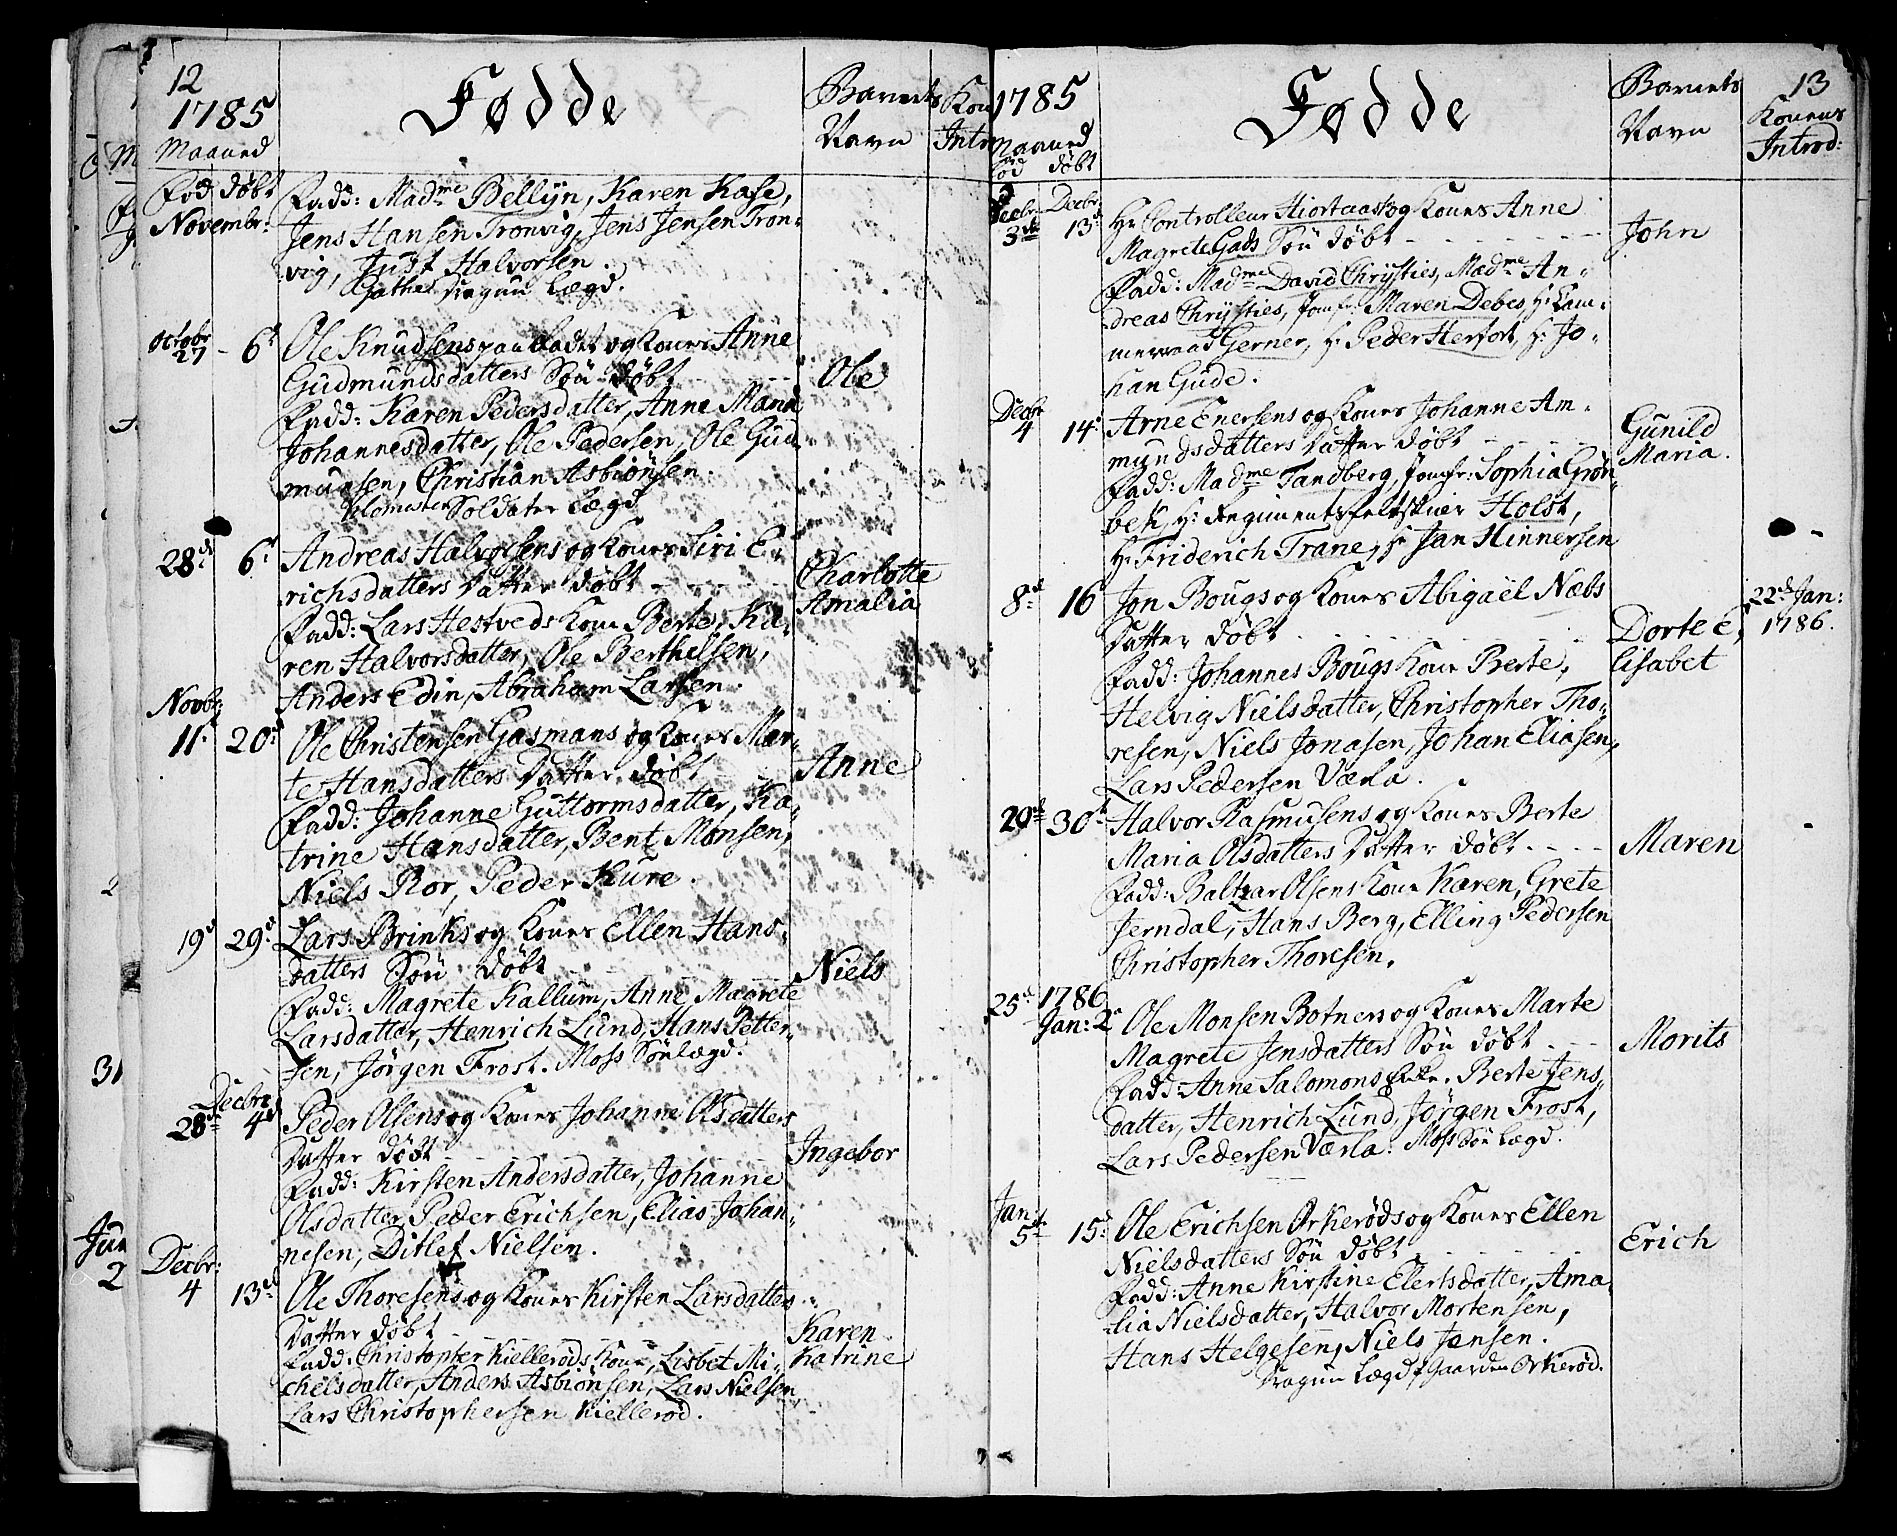 12
1785
Maaned
Fød døbt
Fødde
Barnets
Navn
Kon
Intr
Novembr:
Fadd: Madme Bellÿn, Karen Kase,
Jens Hansen Tronvig, Jens Jensen Tron-
vig, Just Halvorsen.
Dragun Lægd.
Octobr
27 - 6t
Ole Knudsens paa Ladet og Kones Anne
Gudmundsdatters Søn døbt
Ole
Fadd: Karen Pedersdatter, Anne Maria
Johannesdatter, Ole Pedersen, Ole Gud-
munsen, Christian Asbiønsen.
Soldater Lægd
28d 6t
Andreas Halvorsens og Kones Siri E-
richsdatters Datter døbt
Charlotte
Amalia
Fadd: Lars Hestveds Kone Berte, Ka-
ren Halvorsdatter, Ole Berthelsen,
Anders Edin, Abraham Larsen
Novbr:
11t 20d
Ole Christensen Gasmans og Kones Mar-
te Hansdatters Datter døbt
Anne
Fadd: Johanne Guttormsdatter, Ka-
trine Hansdatter, Bent Monsen,
Niels Ror, Peder Kure.
19d 29d
Lars Brinks og Kones Ellen Hans-
datters Søn døbt
Niels
Fadd: Magrete Kallum, Anne Magrete
Larsdatter, Henrich Lund, Hans Petter-
sen, Jørgen Frost. Moss Sønlægd.
Decbr
28de 4d
Peder Olsens og Kones Johanne Olsdatters
Datter døbt
Ingebor
Fadd: Kirsten Andersdatter, Johanne
Olsdatter, Peder Erichsen, Elias Johan-
nesen, Ditlef Nielsen.
Decbr:
4 13de
Ole Thoresens og Kones Kirsten Larsdatters
Datter døbt
Karen
Katrine
Fadd: Christopher Kiellerøds Kone, Lisbet Mi-
chelsdatter, Anders Asbiønsen, Lars Nielsen
Lars Christophersen Kiellerød.
1785
Maaned
Fød døbt
Fødde
Barnets
Navn
13
Konens
Introd:
Decbr Decbr
3de 13d
Hr Controlleur Hiortaas og Kones Anne
Magrete Gads Søn døbt
John
Fadd: Madme David Chrÿsties, Madme An-
dreas Chrÿsties, Jomfr: Maren Debes, Hr: Kam-
merraad Gerner, Hr: Peder Herfort, Hr: Jo-
han Gude.
Decbr
4 14d
Arne Enersens og Kones Johanne Am-
mundsdatters Datter døbt
Gunild
Maria.
Fadd: Madme Tandberg, Jomfr: Sophia Grøn-
bek, Hr: Regimentsfeldskier Holst,
Hr: Friderich Trane, Hr Jan Hinnersen
8d 16
Jon Bougs og Kones Abigaël Næbs
Datter døbt
Dorte E,
lisabet
22d Jan:
1786.
Fadd: Johannes Bougs Kone Berte,
Helvig Nielsdatter, Christopher Tho-
resen, Niels Jonasen, Johan Eliasen,
Lars Pedersen Værla.
20de 30t
Halvor Rasmusens og Kones Berte
Maria Olsdatters Datter døbt
Maren
Fadd: Baltzar Olsens Kone Karen, Grete
Jerndal, Hans Berg, Elling Pedersen
Christopher Thoresen.
25d 1786
Jan: 2d
Ole Monsen Botners og Kones Marte
Magrete Jensdatters Søn døbt
Morits
Fadd: Anne Salomons Enke. Berte Jens-
datter, Henrich Lund, Jørgen Frost,
Lars Pedersen Værla. Moss Søn Lægd.
Jan
5te 15d
Ole Erichsen Orkerøds og Kones Ellen
Nielsdatters Søn døbt
Erich
Fadd: Anne Kirstine Elertsdatter, Ama-
lia Nielsdatter, Halvor Mortensen,
Hans Helgesen, Niels Jansen.
Dragun Lægd, Gaarden Orkerød.